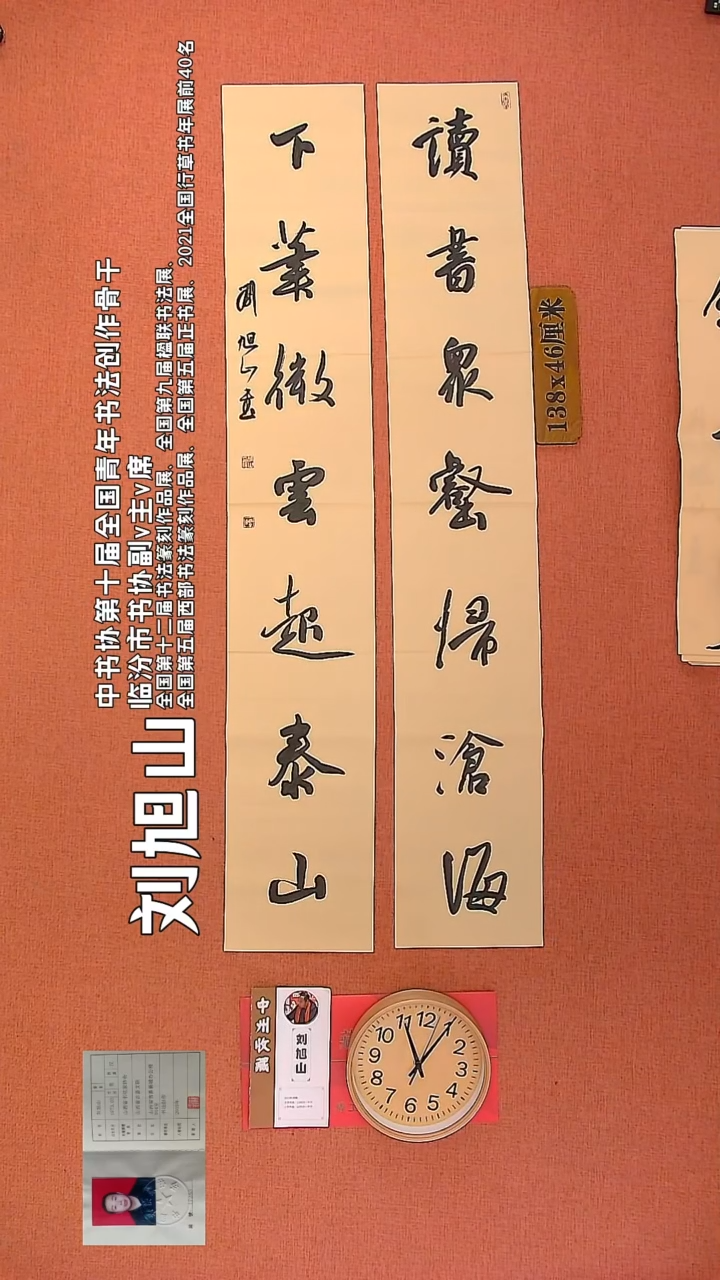 讀書衆壑歸滄海
下筆微雲起泰山
劉旭山書
138x46厘米
中书协第十届全国青年书法创作骨干
临汾市书协副v主v席
全国第十二届书法篆刻作品展、全国第九届楹联书法展、
全国第五届西部书法篆刻作品展、全国第五届正书展、2021全国行草书年展前40名
刘旭山
刘旭山
12
1
2
3
4
5
6
7
8
9
10
11